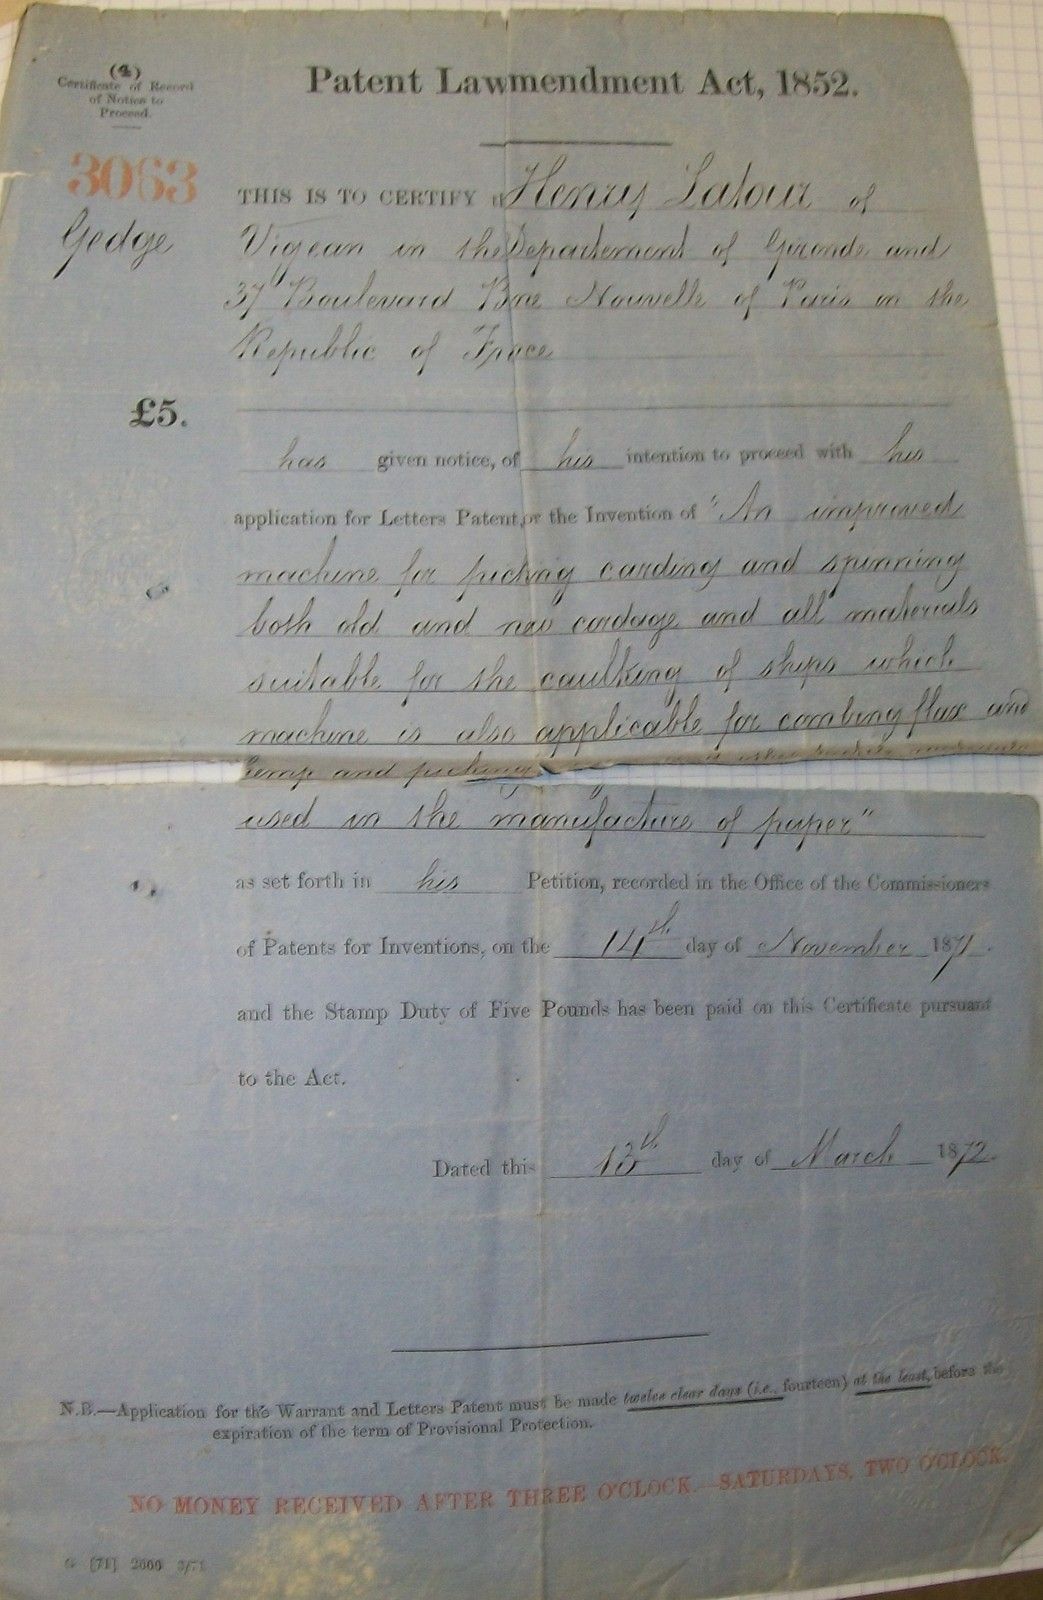 (4)
Certificate of Record
of Notice to
Proceed.
Patent Lawmendment Act, 1852.
3063
Gedge
THIS IS TO CERTIFY Henry Latour of
Vigean in the Departement of Gironde and
37 Boulevard Bne Nouvelle of Paris in the
Republic of Frnce
£5.
has given notice, of his intention to proceed with his
application for Letters Patent, or the Invention of "An improved
machine for picking carding and spinning
both old and new cordage and all materials
suitable for the caulking of ships which
machine is also applicable for combing flax and
hemp and picking
used in the manufacture of paper"
as set forth in his Petition, recorded in the Office of the Commissioners
of Patents for Inventions, on the 14th day of November 1871.
and the Stamp Duty of Five Pounds has been paid on this Certificate pursuant
to the Act.
Dated this 13th day of March 1872.
N.B.—Application for the Warrant and Letters Patent must be made twelve clear days (i.e., fourteen) at the least, before the
expiration of the term of Provisional Protection.
NO MONEY RECEIVED AFTER THREE O'CLOCK.—SATURDAYS, TWO O'CLOCK.
G [71] 2000 3/71